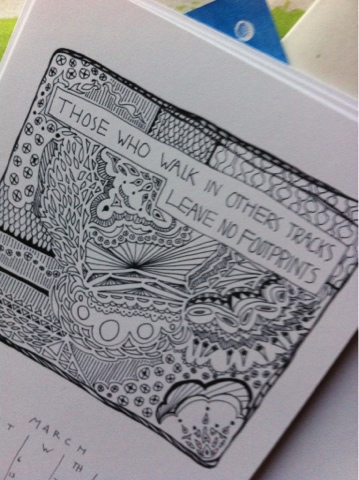 THOSE WHO WALK IN OTHERS TRACKS
LEAVE NO FOOTPRINTS
MARCH
T W TH
6